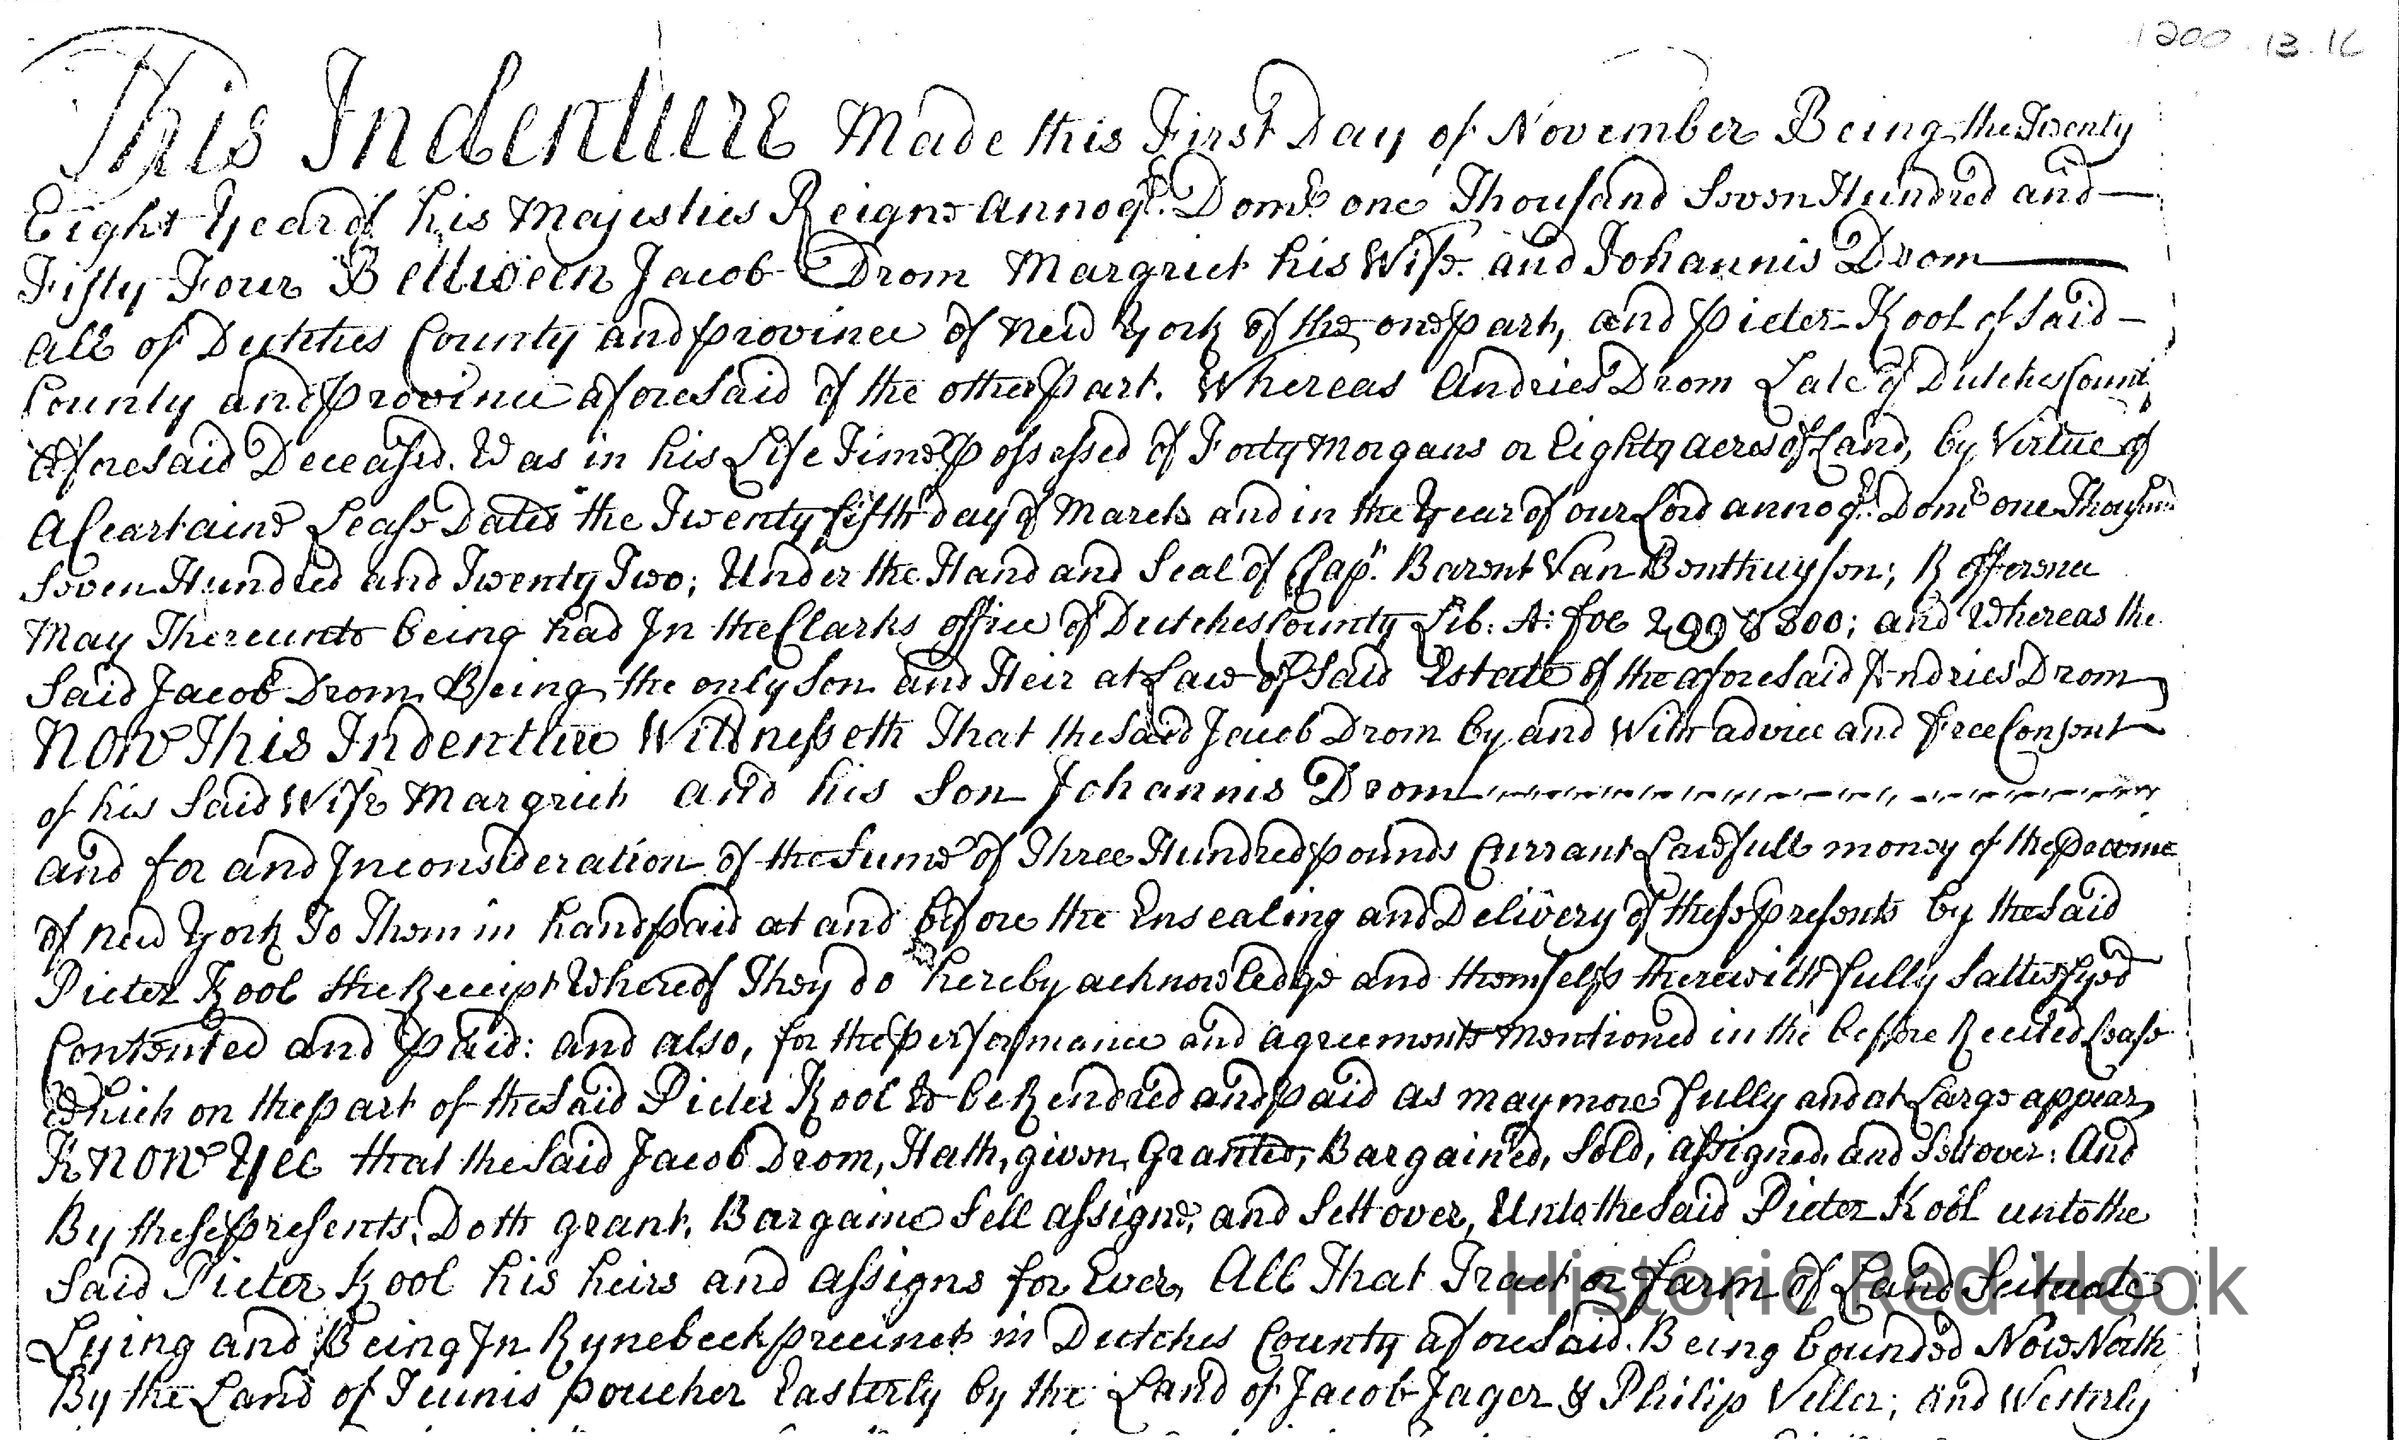 1200.13.16
This Indenture Made this First Day of November Being the Twenty
Eight Year of his Majesties Reigne annoq.e Dom.e one Thousand Seven Hundred and
Fifty Four Between Jacob Drom Margriet his Wife. and Johannis Drom
all of Dutches County and province of new York of the one part, and Pieter Kool of Said
County and province aforesaid of the other part. Whereas Andries Drom Late of Dutches County
aforesaid Deceased. Was in his Life Time possessed of Forty Morgans or Eighty acres of Land, by Virtue of
a Ceartaine Lease Dated the Twenty fifth day of March and in the Year of our Lord annoq.e Dom.e one Thousand
Seven Hundred and Twenty Two; Under the Hand and Seal of Cap.n Barent Van Benthuysen; Refference
May Thereunto being had In the Clarks office of Dutches County Lib: A: foe 299 & 300; and Whereas the
Said Jacob Drom Being the only Son and Heir at Law of Said Estate of the aforesaid Andries Drom
Now This Indenture Wittnesseth That the Said Jacob Drom by and With advice and free Consent
of his Said Wife Margriet and his Son Johannis Drom
and for and Inconsideration of the Sume of Three Hundred pounds Currant Lawfull money of the
of new York To Them in hand paid at and before the Ensealing and Delivery of these presents by the Said
Pieter Kool the Receipt Whereof They do hereby acknowledge and themselfs therewith fully Sattesfyed
Contented and paid: and also, for the performance and agreements mentioned in the before Recited Lease
Which on the part of the Said Pieter Kool to be Rendred and paid as may more fully and at Large appear,
Know Yee that the Said Jacob Drom, Hath, given, Granted, Bargained, Sold, assigned, and Settover: And
By these presents, Doth grant, Bargaine Sell assigne, and Settover, Unto the Said Pieter Kool unto the
Said Pieter Kool his heirs and assigns for Ever, All That Tract or farm of Land Scituate
Lying and Being In Rynebeek precinct in Dutches County aforesaid. Being bounded Now North
By the Land of Teunis poucher Easterly by the Land of Jacob Jager & Philip Veller; and Westerly
Historic Red Hook